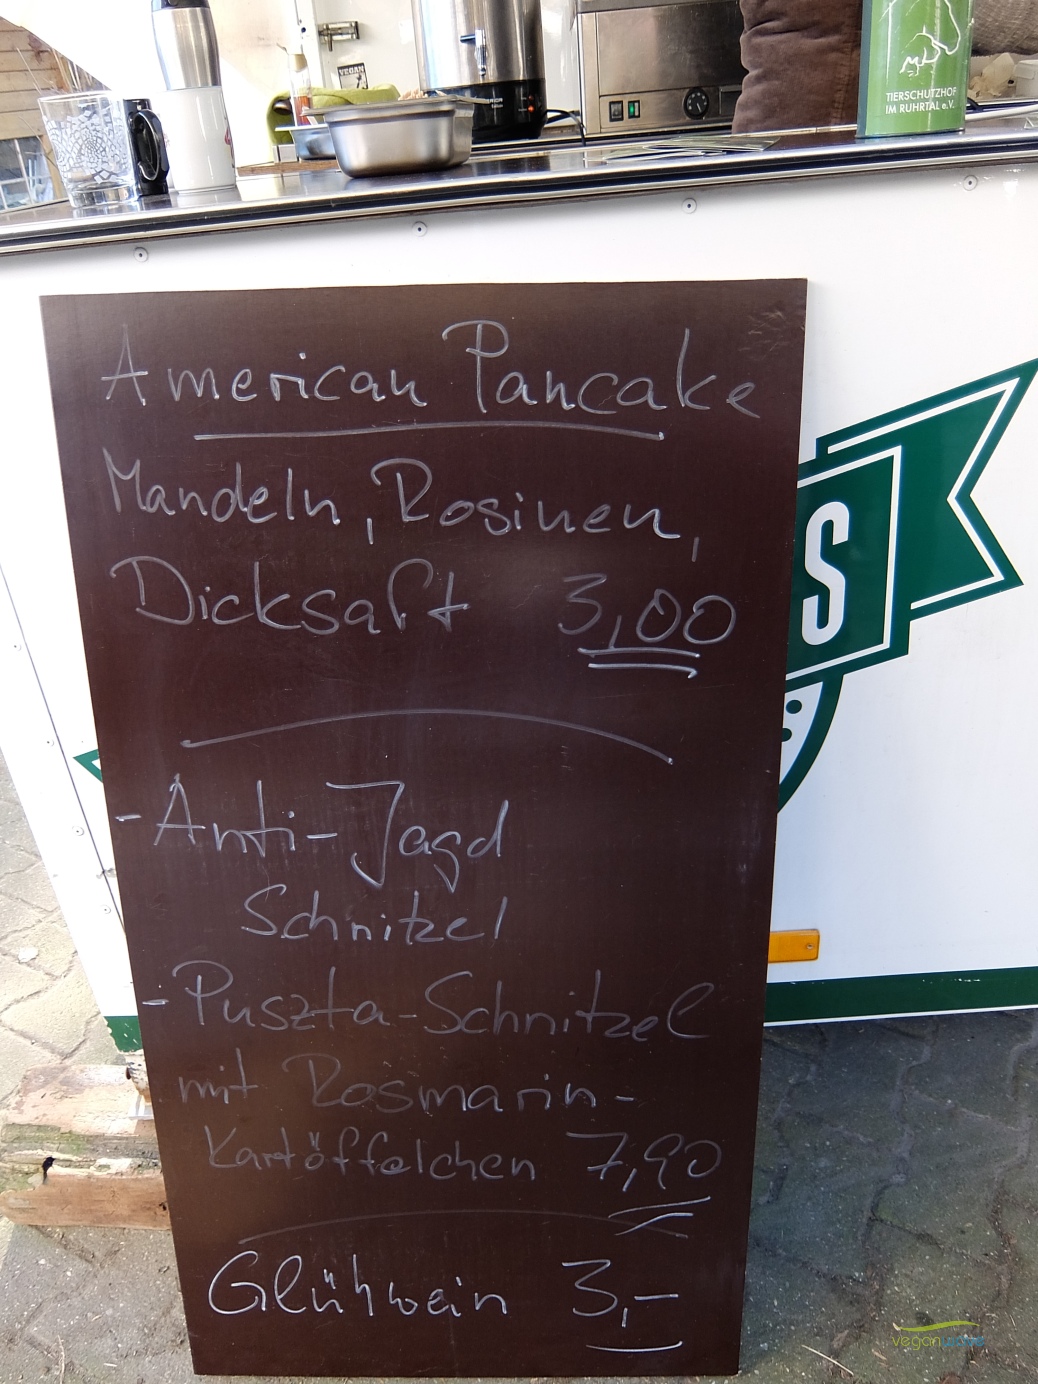 VEGAN
TIERSCHUTZHOF
IM RUHRTAL e.V.
American Pancake
Mandeln, Rosinen,
Dicksaft 3,00
S
- Anti-Jagd
Schnitzel
- Puszta-Schnitzel
mit Rosmarin-
Kartöffelchen 7,90
Glühwein 3,-